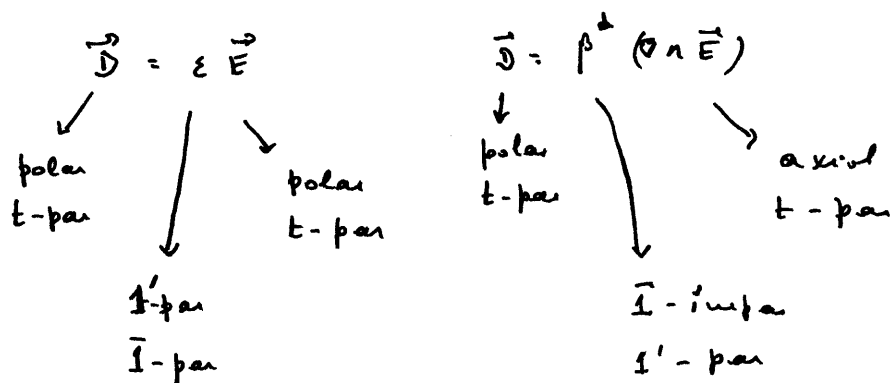 D⃗ = ε E⃗
polar
t-par
polar
t-par
1'-par
1̄-par
D⃗ = β^d (∇ ∧ E⃗)
polar
t-par
axial
t-par
1̄-impar
1'-par